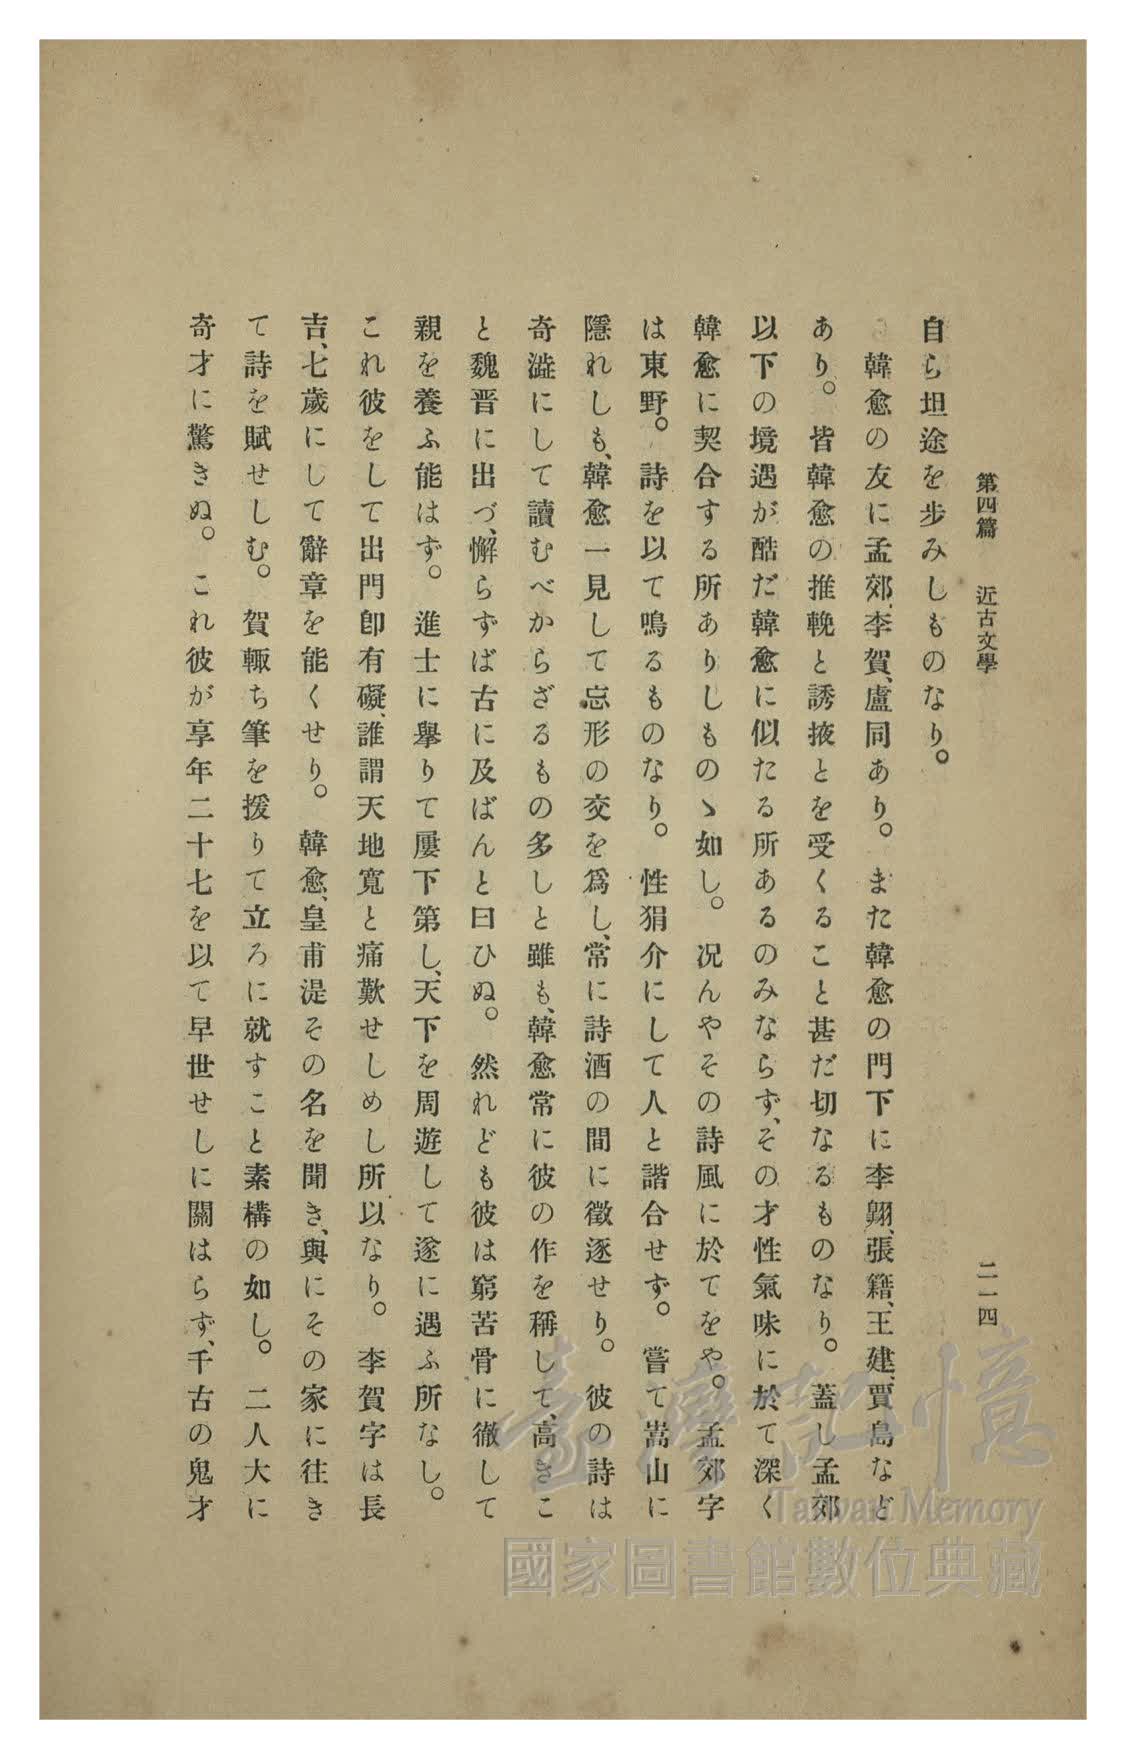 第四篇 近古文學 二一四
自ら坦途を步みしものなり。
韓愈の友に孟郊、李賀、盧同あり。また韓愈の門下に李翺、張籍、王建、賈島など
あり。皆韓愈の推輓と誘掖とを受くること甚だ切なるものなり。蓋し孟郊
以下の境遇が酷だ韓愈に似たる所あるのみならず、その才性氣味に於て深く
韓愈に契合する所ありしものゝ如し。况んやその詩風に於てをや。孟郊字
は東野。詩を以て鳴るものなり。性狷介にして人と諧合せず。嘗て嵩山に
隱れしも、韓愈一見して忘形の交を爲し、常に詩酒の間に徵逐せり。彼の詩は
奇澁にして讀むべからざるもの多しと雖も、韓愈常に彼の作を稱して、高きこ
と魏晋に出づ、懈らずば古に及ばんと曰ひぬ。然れども彼は窮苦骨に徹して
親を養ふ能はず。進士に擧りて屢下第し、天下を周遊して遂に遇ふ所なし。
これ彼をして出門卽有礙、誰謂天地寬と痛歎せしめし所以なり。李賀字は長
吉、七歲にして辭章を能くせり。韓愈、皇甫湜その名を聞き、與にその家に往き
て詩を賦せしむ。賀輙ち筆を援りて立ろに就すこと素構の如し。二人大に
奇才に驚きぬ。これ彼が享年二十七を以て早世せしに關はらず、千古の鬼才
臺灣記憶
Taiwan Memory
國家圖書館數位典藏